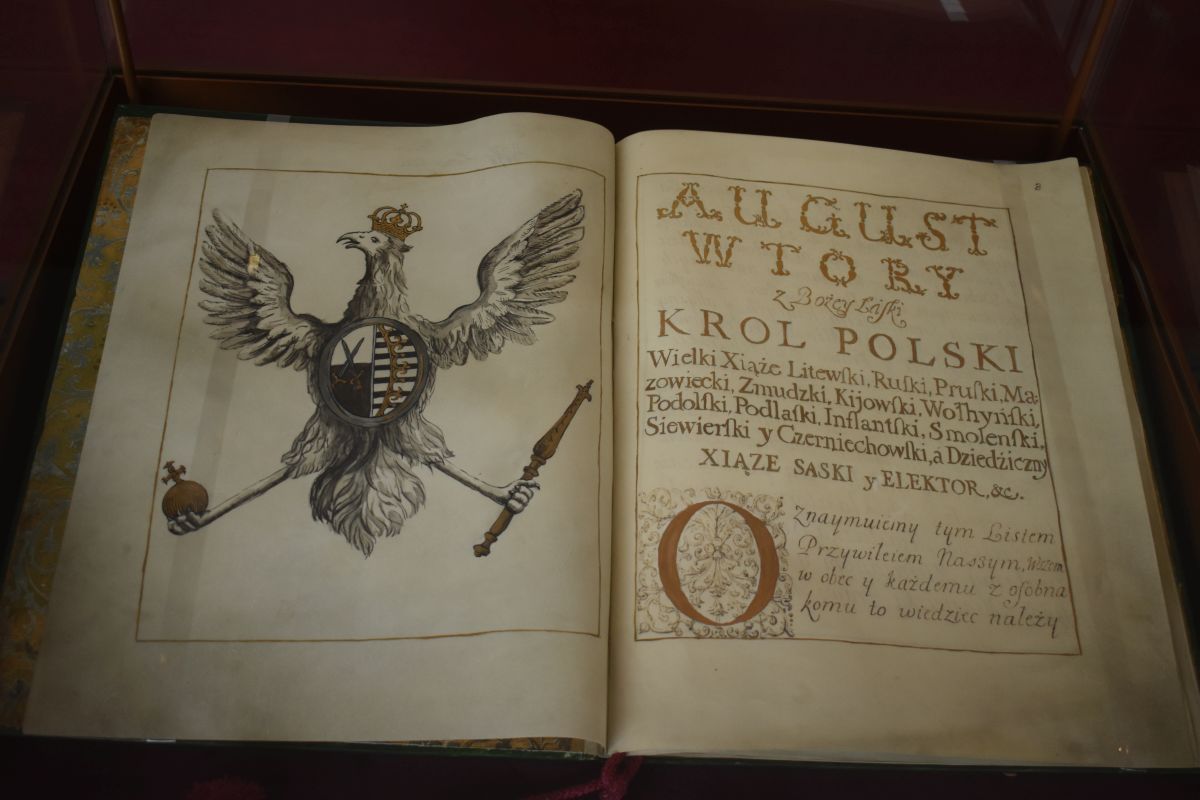 8
AUGUST
WTORY
z Bożey Łaſki
KROL POLSKI
Wielki Xiąże Litewſki, Ruſki, Pruſki, Ma:
zowiecki, Zmudzki, Kijowſki, Wołhyńſki,
Podolſki, Podlaſki, Inflantſki, Smolenſki,
Siewierſki y Czerniechowſki, a Dziedźiczny
XIĄZE SASKI y ELEKTOR, &c.
Oznaymuiemy tym Listem
Przywileiem Naszym, Wszem
w obec y każdemu z oſobna
komu to wiedziec należy